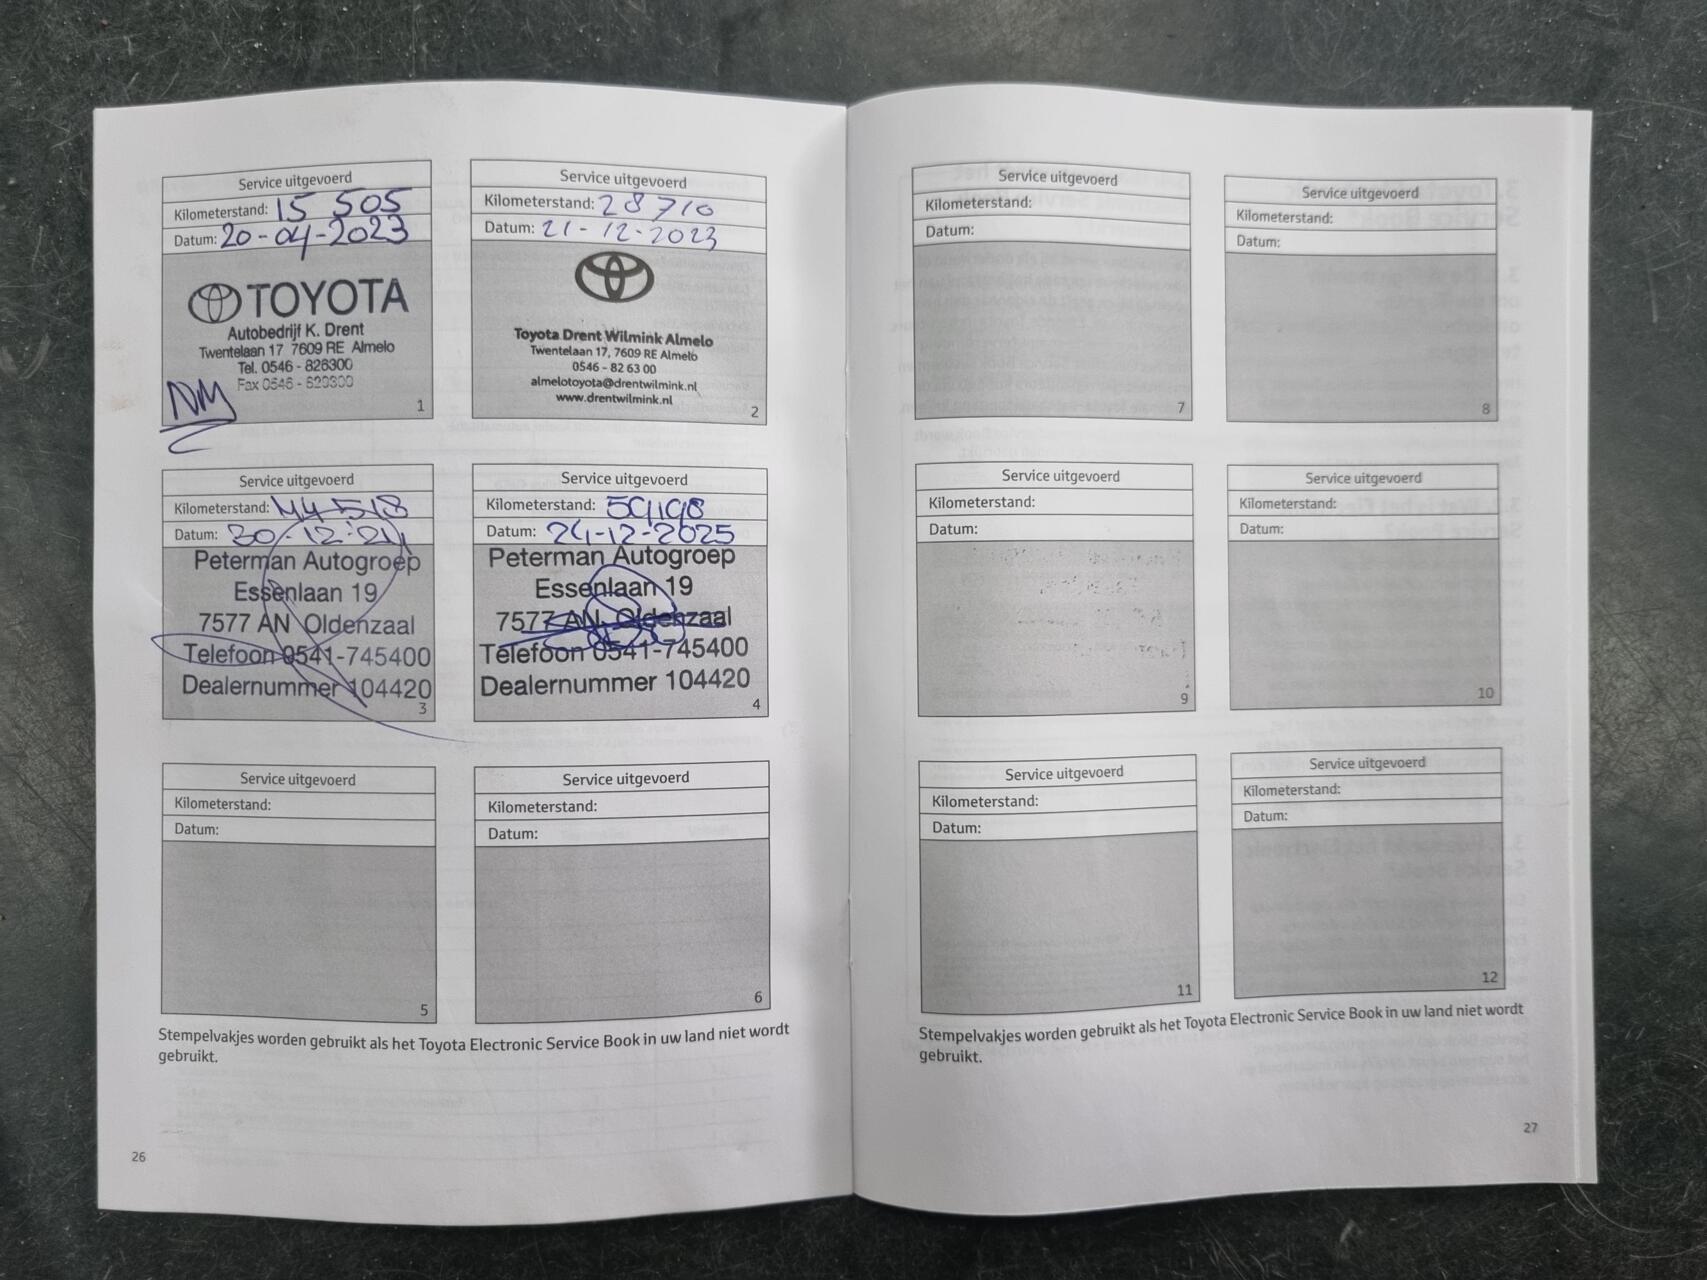 Service uitgevoerd
Kilometerstand: 15 505
Datum: 20-04-2023
TOYOTA
Autobedrijf K. Drent
Twentelaan 17 7609 RE Almelo
Tel. 0546 - 826300
Fax 0546 - 829300
NM
1
Service uitgevoerd
Kilometerstand: 28710
Datum: 21-12-2023
Toyota Drent Wilmink Almelo
Twentelaan 17, 7609 RE Almelo
0546 - 82 63 00
almelotoyota@drentwilmink.nl
www.drentwilmink.nl
2
Service uitgevoerd
Kilometerstand: 44518
Datum: 30-12-24
Peterman Autogroep
Essenlaan 19
7577 AN Oldenzaal
Telefoon 0541-745400
Dealernummer 104420
3
Service uitgevoerd
Kilometerstand:
Datum: 24-12-2025
Peterman Autogroep
Essenlaan 19
7577 AN Oldenzaal
Telefoon 0541-745400
Dealernummer 104420
4
Service uitgevoerd
Kilometerstand:
Datum:
5
Service uitgevoerd
Kilometerstand:
Datum:
6
Stempelvakjes worden gebruikt als het Toyota Electronic Service Book in uw land niet wordt
gebruikt.
26
Service uitgevoerd
Kilometerstand:
Datum:
7
Service uitgevoerd
Kilometerstand:
Datum:
8
Service uitgevoerd
Kilometerstand:
Datum:
9
Service uitgevoerd
Kilometerstand:
Datum:
10
Service uitgevoerd
Kilometerstand:
Datum:
11
Service uitgevoerd
Kilometerstand:
Datum:
12
Stempelvakjes worden gebruikt als het Toyota Electronic Service Book in uw land niet wordt
gebruikt.
27